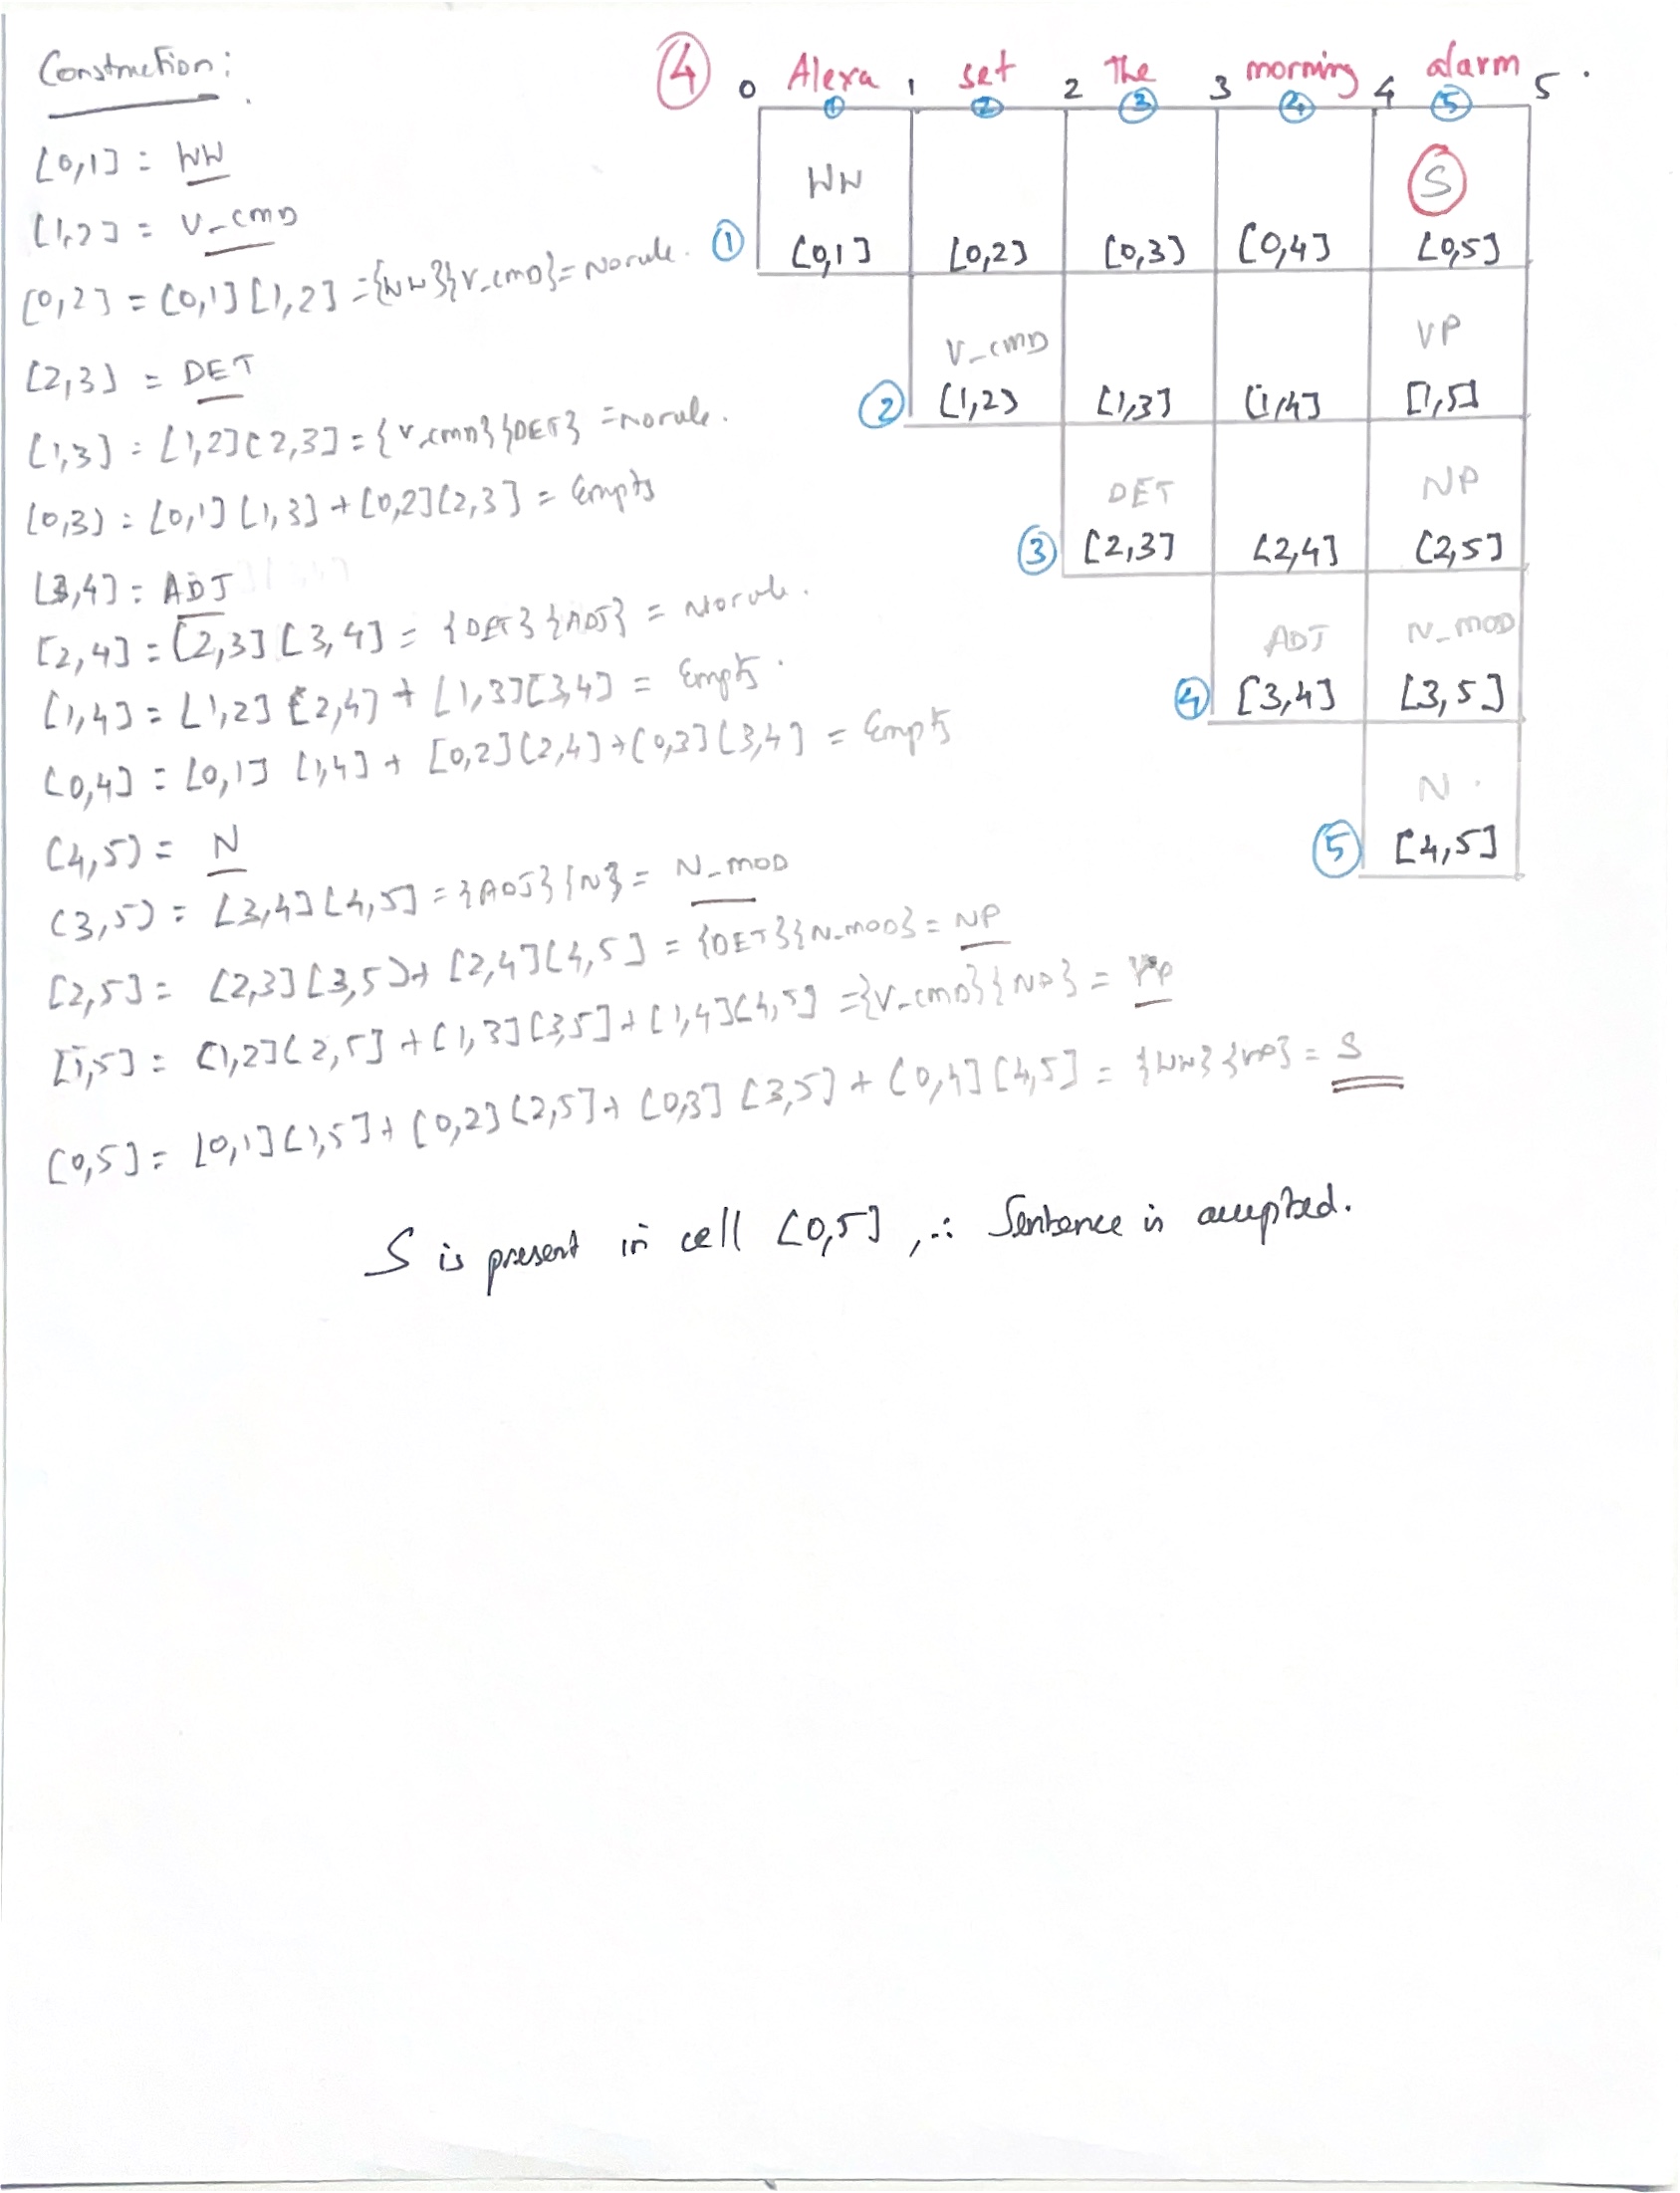 Construction:
[0,1] = WW
[1,2] = V_CMD
[0,2] = [0,1] [1,2] = {WW}{V_CMD} = No rule.
[2,3] = DET
[1,3] = [1,2] [2,3] = {V_CMD} {DET} = No rule.
[0,3] = [0,1] [1,3] + [0,2] [2,3] = Empty
[3,4] = ADJ
[2,4] = [2,3] [3,4] = {DET} {ADJ} = No rule.
[1,4] = [1,2] [2,4] + [1,3] [3,4] = Empty.
[0,4] = [0,1] [1,4] + [0,2] [2,4] + [0,3] [3,4] = Empty
[4,5] = N
[3,5] = [3,4] [4,5] = {ADJ} {N} = N_MOD
[2,5] = [2,3] [3,5] + [2,4] [4,5] = {DET} {N_MOD} = NP
[1,5] = [1,2] [2,5] + [1,3] [3,5] + [1,4] [4,5] = {V_CMD} {NP} = VP
[0,5] = [0,1] [1,5] + [0,2] [2,5] + [0,3] [3,5] + [0,4] [4,5] = {WW} {VP} = S
④ 0 Alexa 1 set 2 The 3 morning 4 alarm 5 .
① ② ③ ④ ⑤
WW S
① [0,1] [0,2] [0,3] [0,4] [0,5]
V_CMD VP
② [1,2] [1,3] [1,4] [1,5]
DET NP
③ [2,3] [2,4] [2,5]
ADJ N_MOD
④ [3,4] [3,5]
N .
⑤ [4,5]
S is present in cell [0,5] , ∴ Sentence is accepted.